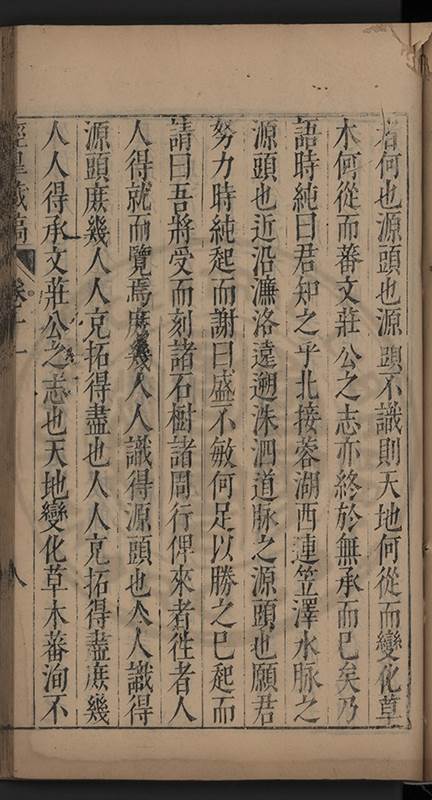 若何也源頭也源頭不識則天地何從而變化草
木何從而蕃文莊公之志亦終於無承而已矣乃
語時純曰君知之乎北接蓉湖西連笠澤水脉之
源頭也近沿濂洛遠遡洙泗道脉之源頭也願君
努力時純起而謝曰盛不敏何足以勝之已起而
請曰吾將受而刻諸石樹諸周行俾來者徃者人
人得就而覽焉庶幾人人識得源頭也人人識得
源頭庶幾人人克拓得盡也人人克拓得盡庶幾
人人得承文莊公之志也天地變化草木蕃洵不
涇臯藏稿 卷十一 八